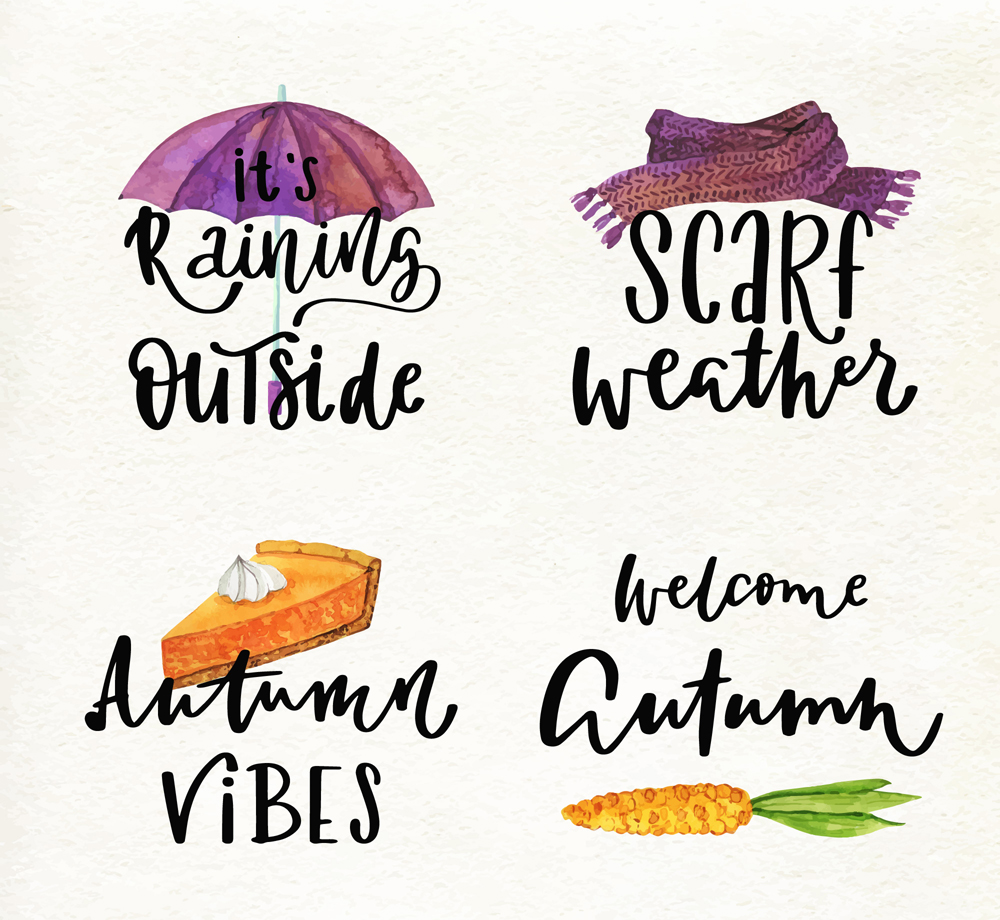 it's
Raining
OUTside
SCaRf
weather
Autumn
ViBES
Welcome
Autumn